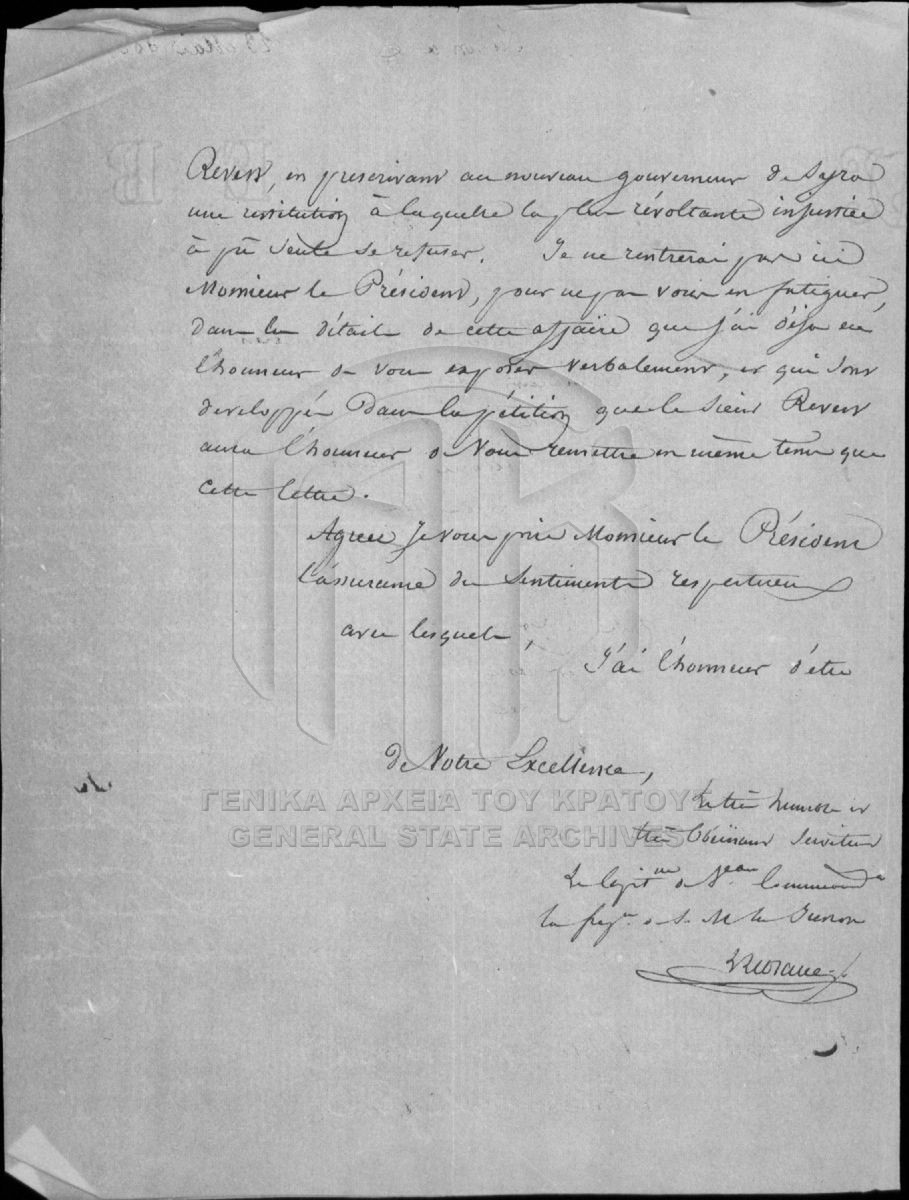 Revest, en prescrivant au nouveau gouverneur de Syra
une restitution à laquelle la plus révoltante injustice
à pû seule se refuser. Je ne rentrerai pas ici
Monsieur le Président, pour ne pas vous en fatiguer,
dans les détails de cette affaire que j'ai déja eu
l'honneur de vous exposer verbalement, et qui sont
developpés dans la pétition que le Sieur Revest
aura l'honneur de Vous remettre en même tems que
cette lettre.
Agréez Je vous prie Monsieur le Président
l'assurance des Sentiments respectueux
avec lesquels,
J'ai l'honneur d'être
de Votre Excellence,
Le très humble et
très Obéissant Serviteur
Le Capit.ne de V.eau Command.t
la frég.te de S. M. la Junon
ΓΕΝΙΚΑ ΑΡΧΕΙΑ ΤΟΥ ΚΡΑΤΟΥΣ
GENERAL STATE ARCHIVES